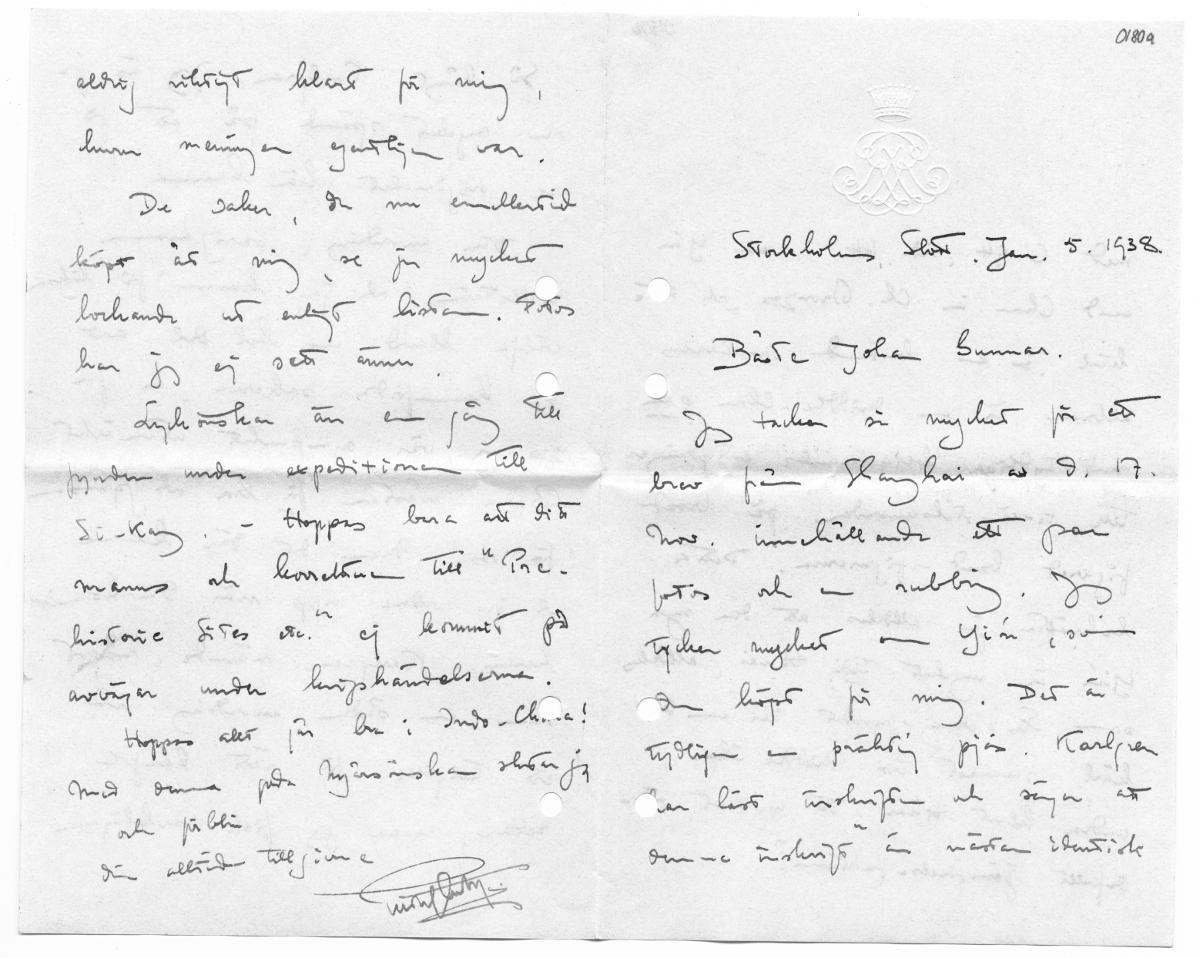 0180a
Stockholms Slott. Jan. 5. 1938.
Bäste Johan Gunnar.
Jag tackar så mycket för ett
brev från Shanghai av d. 17.
Nov. innehållande ett par
fotos och en rubbing. Jag
tycker mycket om Yi'n, som
du köpt för mig. Det är
tydligen en präktig pjäs. Karlgren
har läst inskriften och säger att
denna inskrift är nästan identisk
aldrig riktigt klart för mig,
hur meningen egentligen var.
De saker, du nu emellertid
köpt åt mig, se ju mycket
lockande ut enligt listan. Fotos
har jag ej sett ännu.
Lyckönskar än en gång till
fynden under expeditionen till
Si-Kang. – Hoppas bara att ditt
manus och korrekturen till "Pre-
historic Sites etc." ej kommit på
avvägar under krigshändelserna.
Hoppas allt går bra i Indo-China!
Med denna goda Nyårsönskan slutar jag
och förblir
din alltid tillgivne